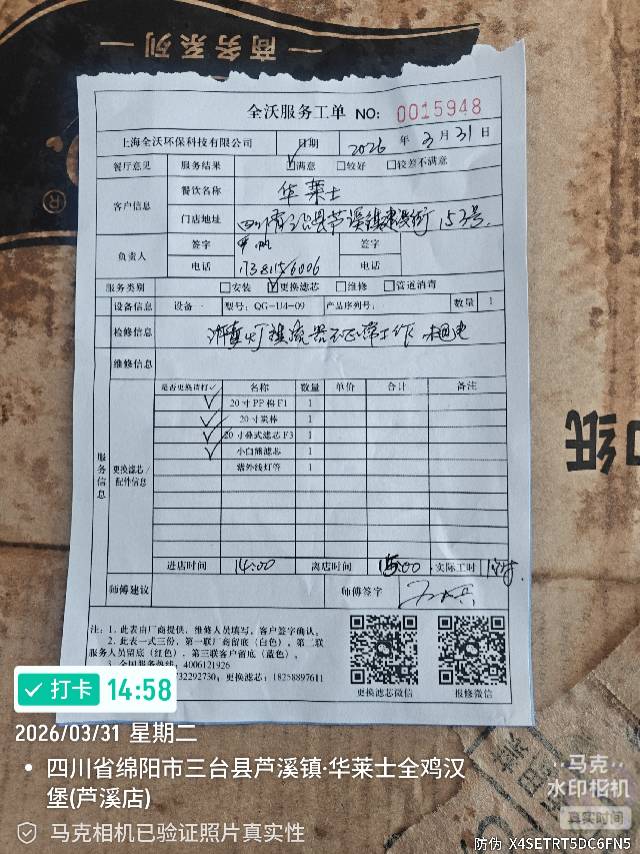 商务系列
全沃服务工单 NO: 0015948
上海全沃环保科技有限公司 日期 2026 年 3 月 31 日
餐厅意见 服务结果 ☑满意 □较好 □较差不满意
客户信息 餐饮名称 华莱士
门店地址 四川省三台县芦溪镇建设街153号
负责人 签字 签字
电话 17381156006 电话
服务类别 □安装 ☑更换滤芯 □维修 □管道消毒
设备信息 设备一 型号: QG-U4-09 产品序列号: 数量 1
检修信息 灯镇流器不正常工作
维修信息
服务信息 更换滤芯/配件信息 是否更换请打✓ 名称 数量 单价 合计 备注
✓ 20寸PP棉F1 1
✓ 20寸炭棒 1
✓ 20寸叠式滤芯F3 1
✓ 小白熊滤芯 1
紫外线灯管 1
进店时间 14:00 离店时间 15:00 实际工时
师傅建议 师傅签字
注: 1. 此表由厂商提供, 维修人员填写, 客户签字确认。
2. 此表一式三份, 第一联厂商留底 (白色), 第二联
服务人员留底 (红色), 第三联客户留底 (蓝色)。
3. 全国服务热线: 4006121926
732292730; 更换滤芯: 18258897611
更换滤芯微信 报修微信
纸
打卡 14:58
2026/03/31 星期二
四川省绵阳市三台县芦溪镇·华莱士全鸡汉
堡(芦溪店)
马克相机已验证照片真实性
马克
水印相机
真实时间
防伪 X4SETRT5DC6FN5